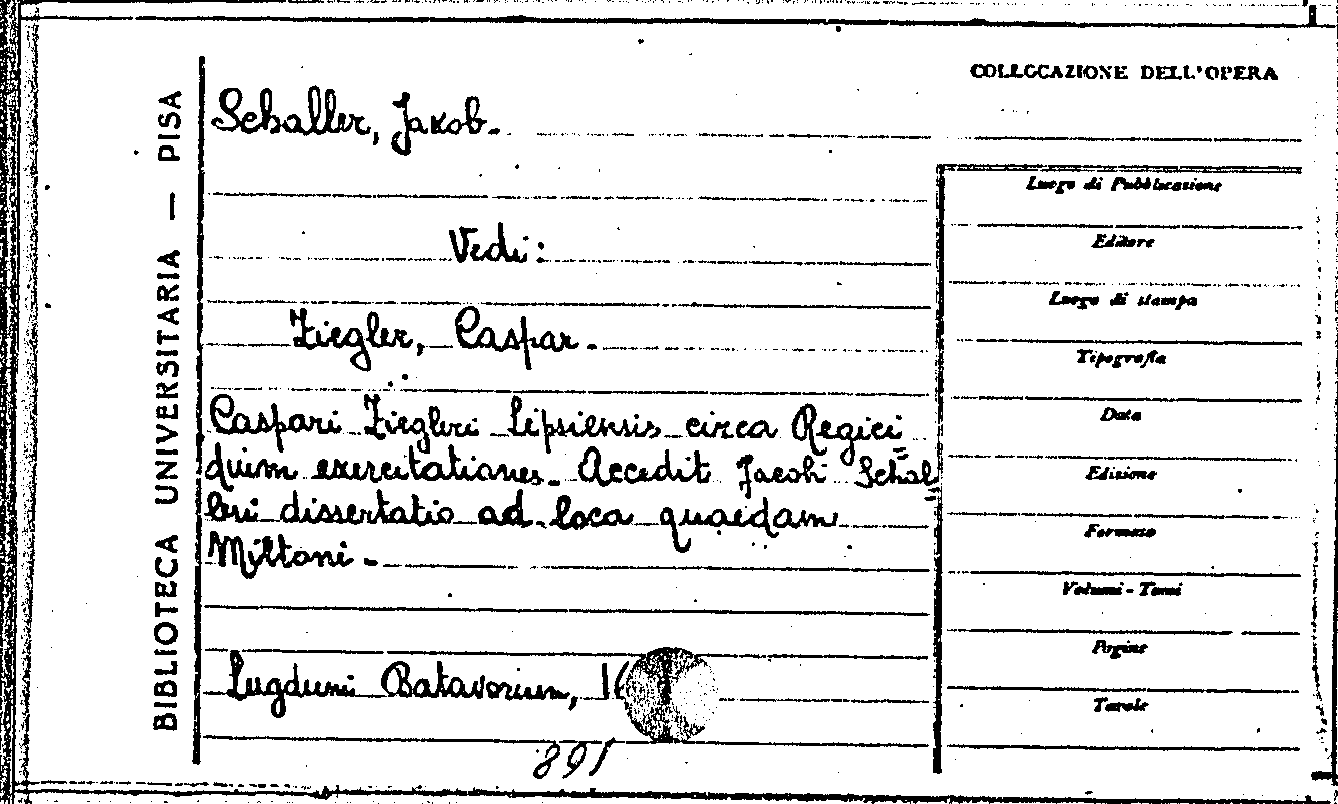 BIBLIOTECA UNIVERSITARIA — PISA
COLLOCAZIONE DELL'OPERA
Schaller, Jakob.
Vedi:
Ziegler, Caspar.
Caspari Ziegleri Lipsiensis circa Regici
dium exercitationes. Accedit Jacobi Schal
leri dissertatio ad loca quaedam
Miltoni.
Lugduni Batavorum, 16
891
Luogo di Pubblicazione
Editore
Luogo di stampa
Tipografia
Data
Edizione
Formato
Volumi - Tomi
Pagine
Tavole